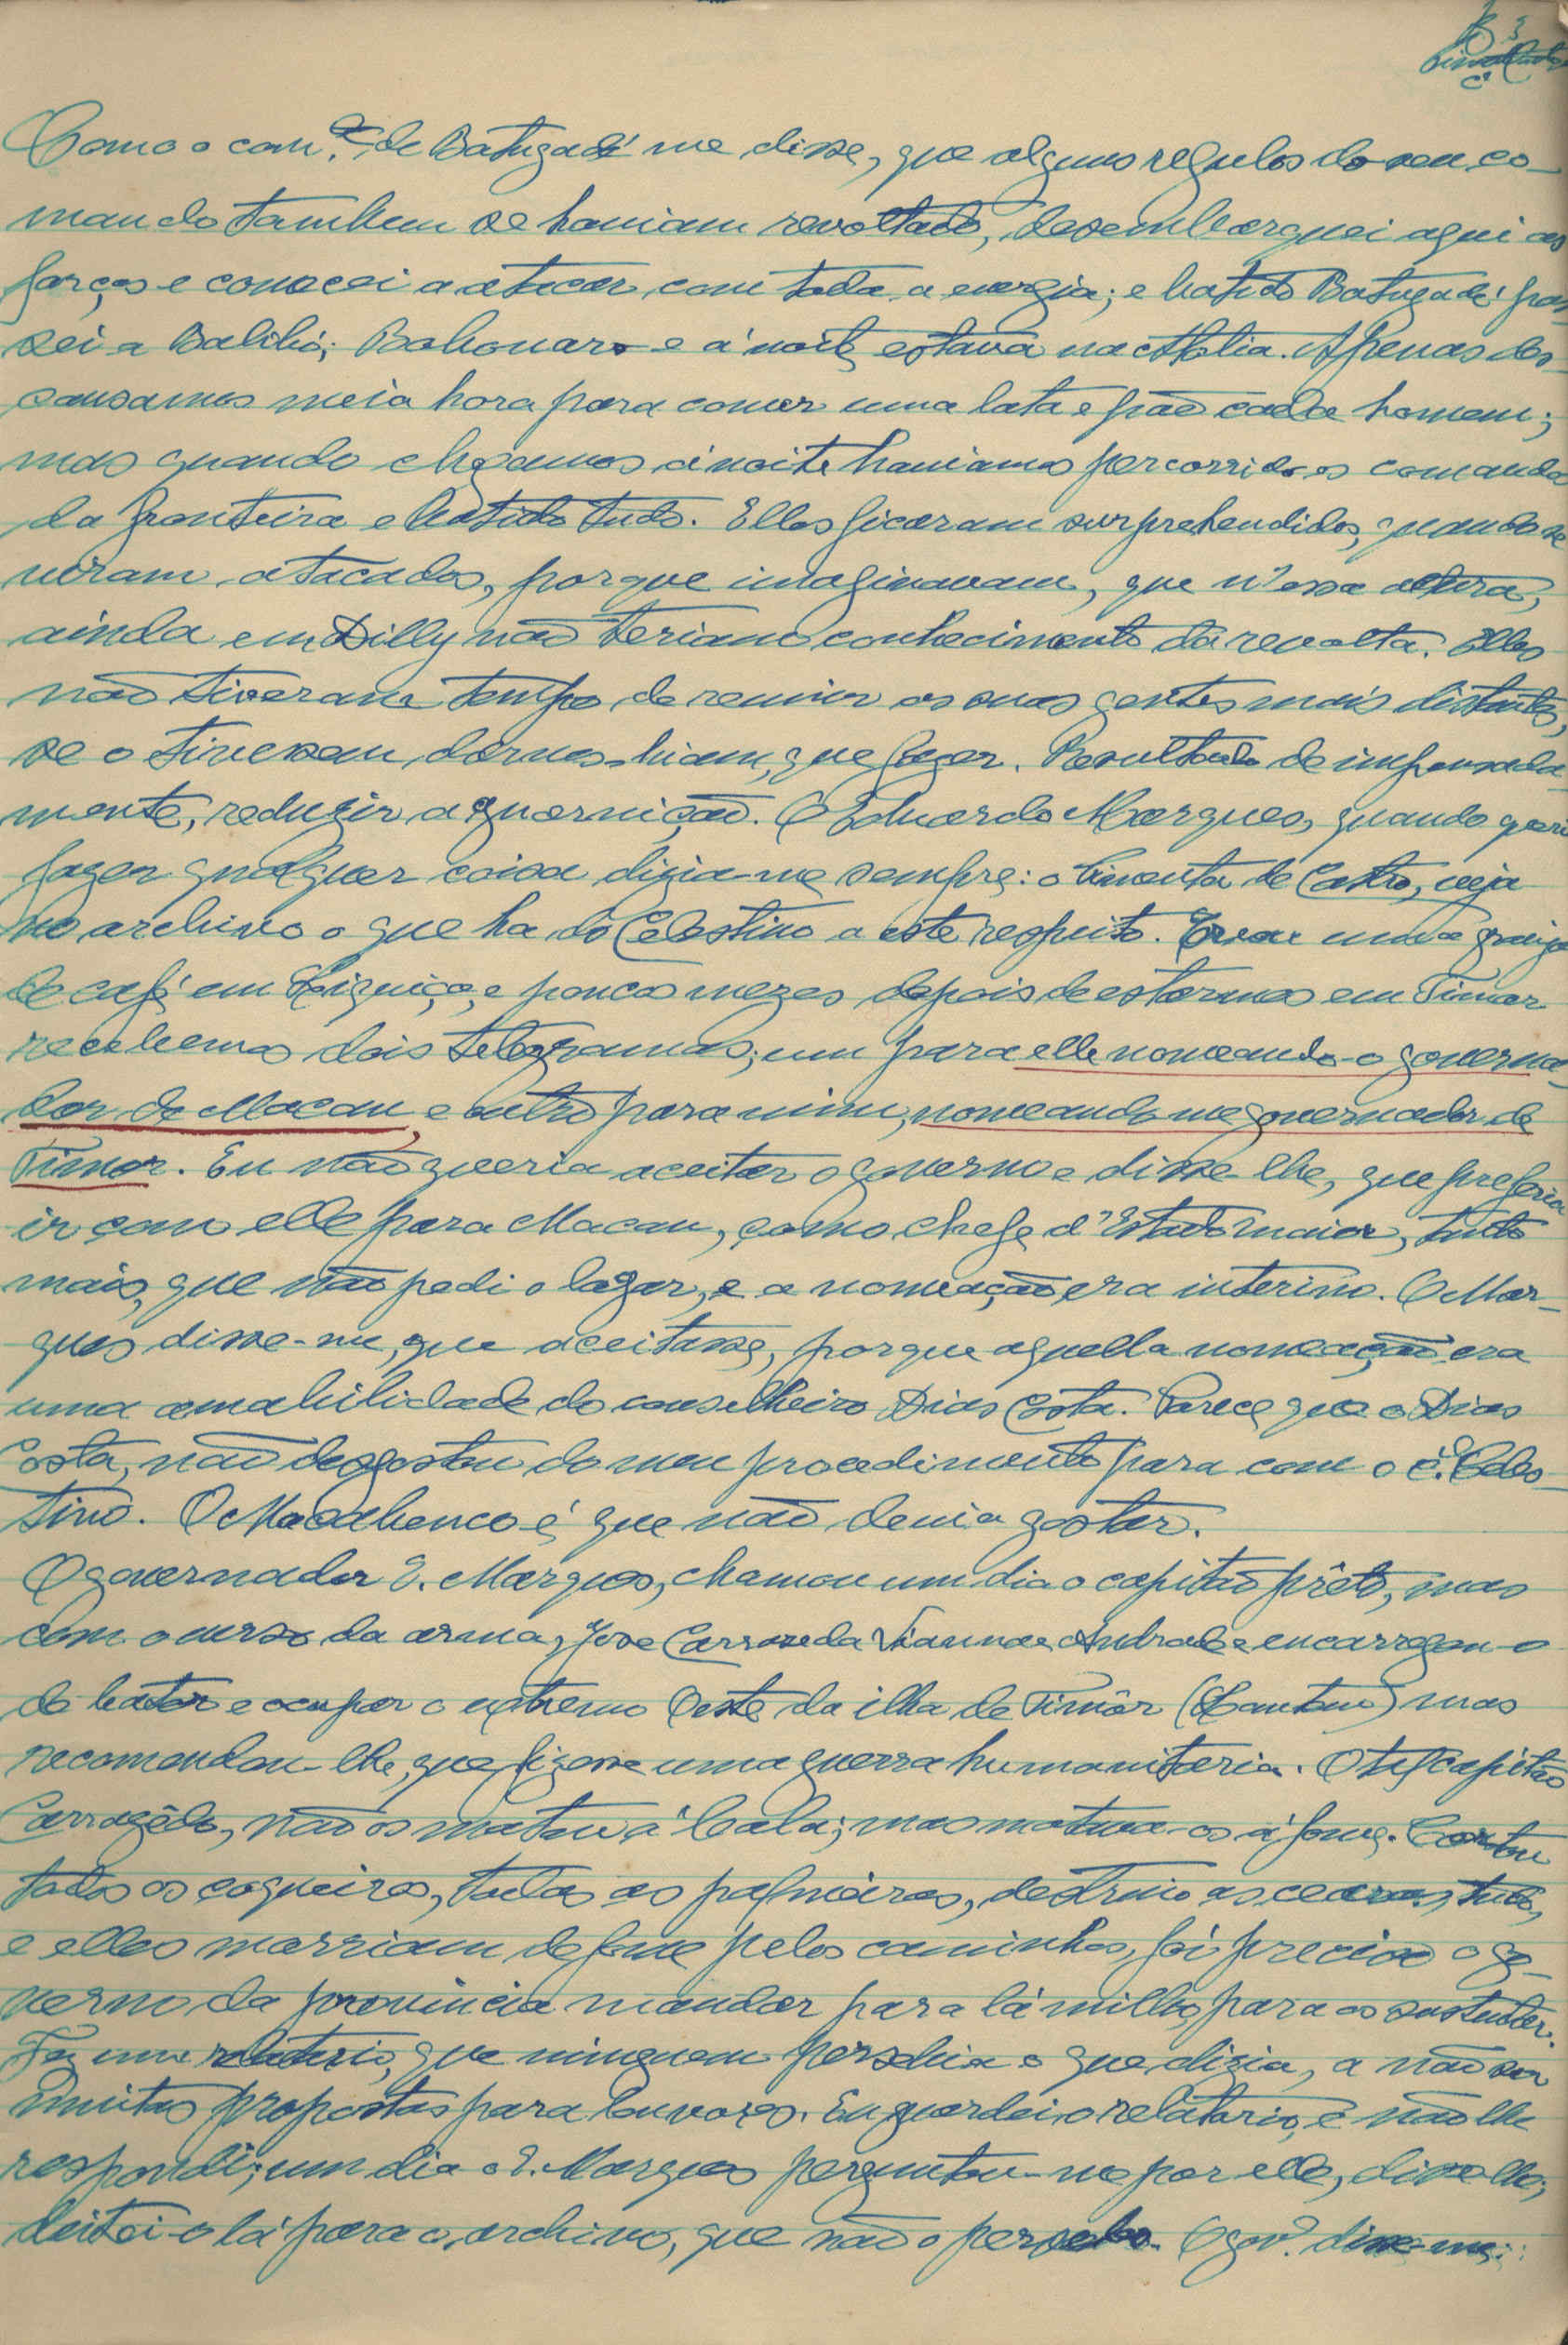 Como o com.te de Batugadé me disse, que alguns regulos do seu co-
mando tambem se haviam revoltado, desembarquei aqui as
forças e comecei a atacar com toda a energia; e batido Batugadé pas-
sei a Balibó; Bobonaro e á noite estava na Atalia. Apenas des-
cansamos meia hora para comer uma lata e pão cada homem;
mas quando chegamos á noite haviamos percorrido os comandos
da fronteira e batido tudo. Elles ficaram surprehendidos, quando se
viram atacados, porque imaginavam, que n'essa altura,
ainda em Dilly não teriam conhecimento da revolta. Elles
não tiveram tempo de reunir as suas gentes mais distantes,
se o tivessem davam-nos que fazer. Resultado de impensada-
mente, reduzir a guarnição. O Eduardo Marques, quando queria
fazer qualquer coisa dizia-me sempre: o Pimenta de Castro, veja
no archivo o que ha do Celestino a este respeito. Creou uma granja
de café em Liquiçá, e poucos mezes depois de estarmos em Timor
recebemos dois telegramas; um para elle nomeando-o governa-
dor de Macau, e outro para mim, nomeando-me governador de
Timor. Eu não queria aceitar o governo e disse-lhe, que preferia
ir com elle para Macau, como chefe d'Estado maior, tanto
mais, que não pedi o lugar, e a nomeação era interino. O Mar-
ques disse-me, que aceitasse, porque aquella nomeação era
uma amabilidade do conselheiro Dias Costa. Parece que o Dias
Costa, não desgostou do meu procedimento para com o c.o Celes-
tino. O Macabenco é que não devia gostar.
O governador E. Marques, chamou um dia o capitão prêto, mas
com o curso da arma, José Carrazeda Vianna e Andrade e encarregou-o
de bater e ocupar o extremo Oeste da ilha de Timôr (Lautem) mas
recomendou-lhe, que fizesse uma guerra humanitaria. O tal capitão
Carrazêda, não os matou á bala; mas matava-os á fome. Cortou
todos os coqueiros, todas as palmeiras, destruio as cearas, tudo,
e elles morriam de fome pelos caminhos, foi preciso o go-
verno da provincia mandar para lá milho, para os sustentar.
Fez um relatorio, que ninguem persebia o que dizia, a não ser
muitas propostas para louvores. Eu guardei o relatorio, e não lhe
respondi; um dia o E. Marques perguntou-me por elle, disse-lhe;
deitei-o lá para o archivo, que não o persebo. O gov.or disse-me: